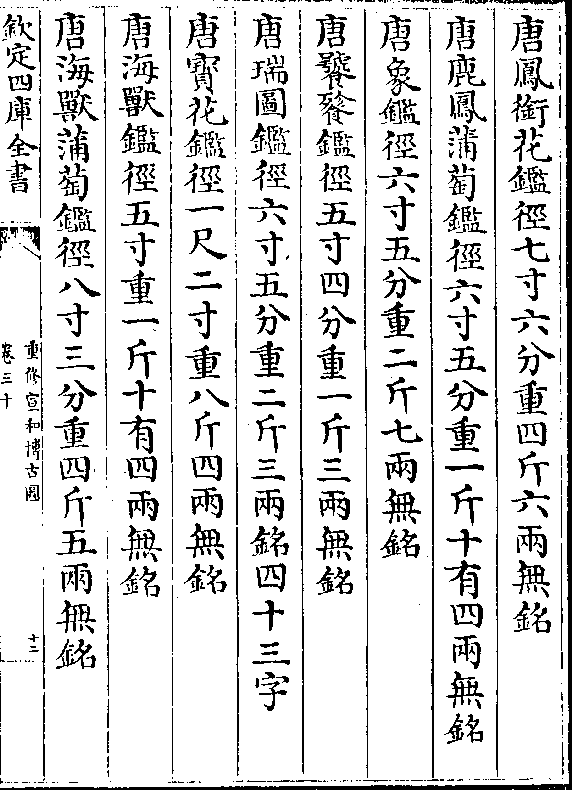 唐鳳銜花鑑徑七寸六分重四斤六兩無銘
唐鹿鳳蒲萄鑑徑六寸五分重一斤十有四兩無銘
唐象鑑徑六寸五分重二斤七兩無銘
唐饕餮鑑徑五寸四分重一斤三兩無銘
唐瑞圖鑑徑六寸五分重二斤三兩銘四十三字
唐寶花鑑徑一尺二寸重八斤四兩無銘
唐海獸鑑徑五寸重一斤十有四兩無銘
唐海獸蒲萄鑑徑八寸三分重四斤五兩無銘
欽定四庫全書
重修宣和博古圖
卷三十
十二